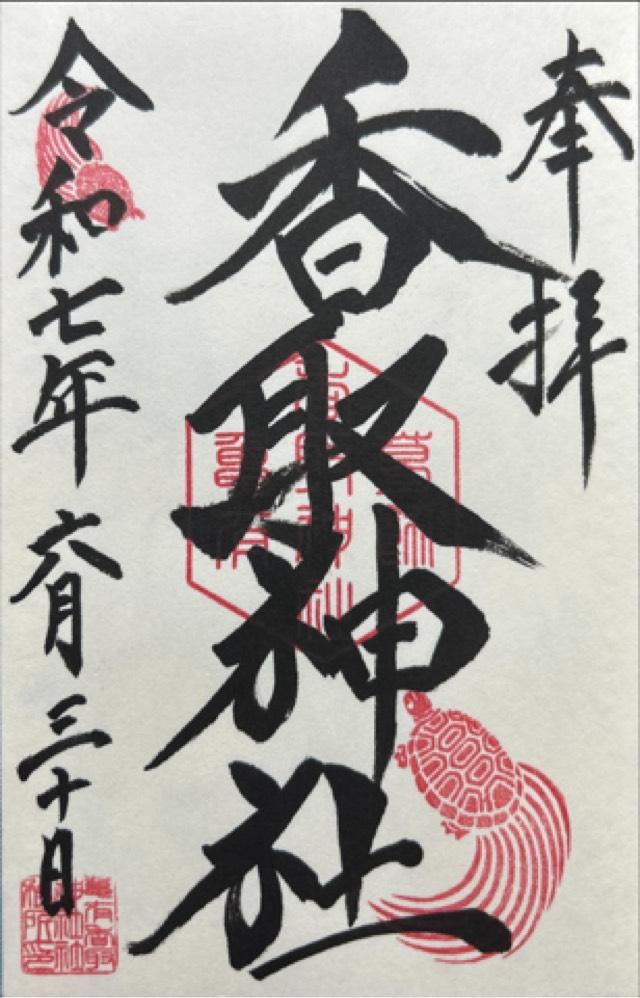 奉拝
香取神社
令和七年六月三十日